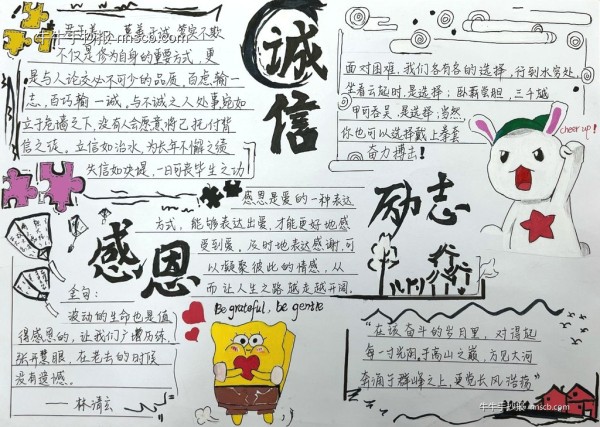 诚信
君子养心莫善于诚，笃实不欺
不仅是修为自身的重要方式，更
是与人论交必不可少的品质，百虑输一
志，百巧输一诚，与不诚之人处事宛如
立于危墙之下，没有人会愿意将己托付背
信之徒。立信如治水，为长年不懈之绩
失信如决堤，一日可丧毕生之功
面对困难，我们各有各的选择，行到水穷处，
坐看云起时，是选择；卧薪尝胆，三千越
甲可吞吴，是选择；当然，
你也可以选择戴上拳套
奋力搏击！
cheer up!
励志
感恩
感恩是爱的一种表达
方式，能够表达出爱，才能更好地感
受到爱，及时地表达感谢，可
以凝聚彼此的情感，从
而让人生之路越走越开阔。
Be grateful, be gentle
金句：
波动的生命也是值
得感恩的，让我们广增历练，
张开慧眼，在老去的时候
没有遗憾。
——林清玄
"在该奋斗的岁月里，对得起
每一寸光阴，于高山之巅，方见大河
奔涌于群峰之上，更觉长风浩荡"
牛牛手抄报 nnscb.com